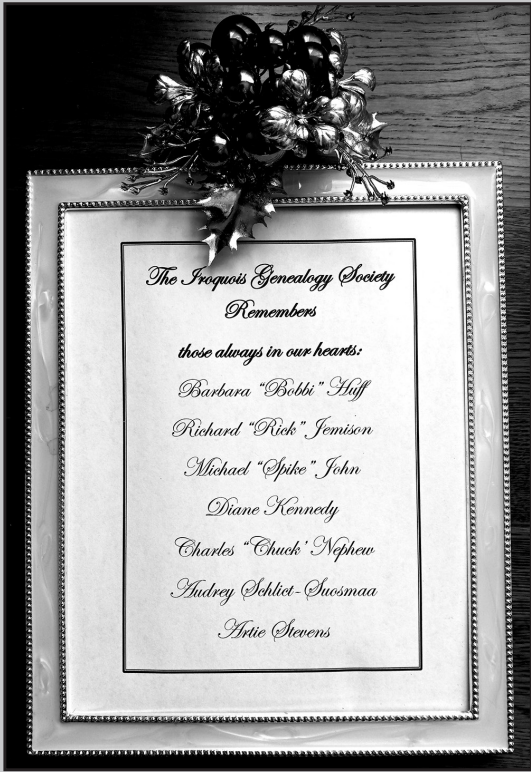 The Iroquois Genealogy Society
Remembers
those always in our hearts:
Barbara “Bobbi” Huff
Richard “Rick” Jemison
Michael “Spike” John
Diane Kennedy
Charles “Chuck’ Nephew
Audrey Schlict-Suosmaa
Artie Stevens